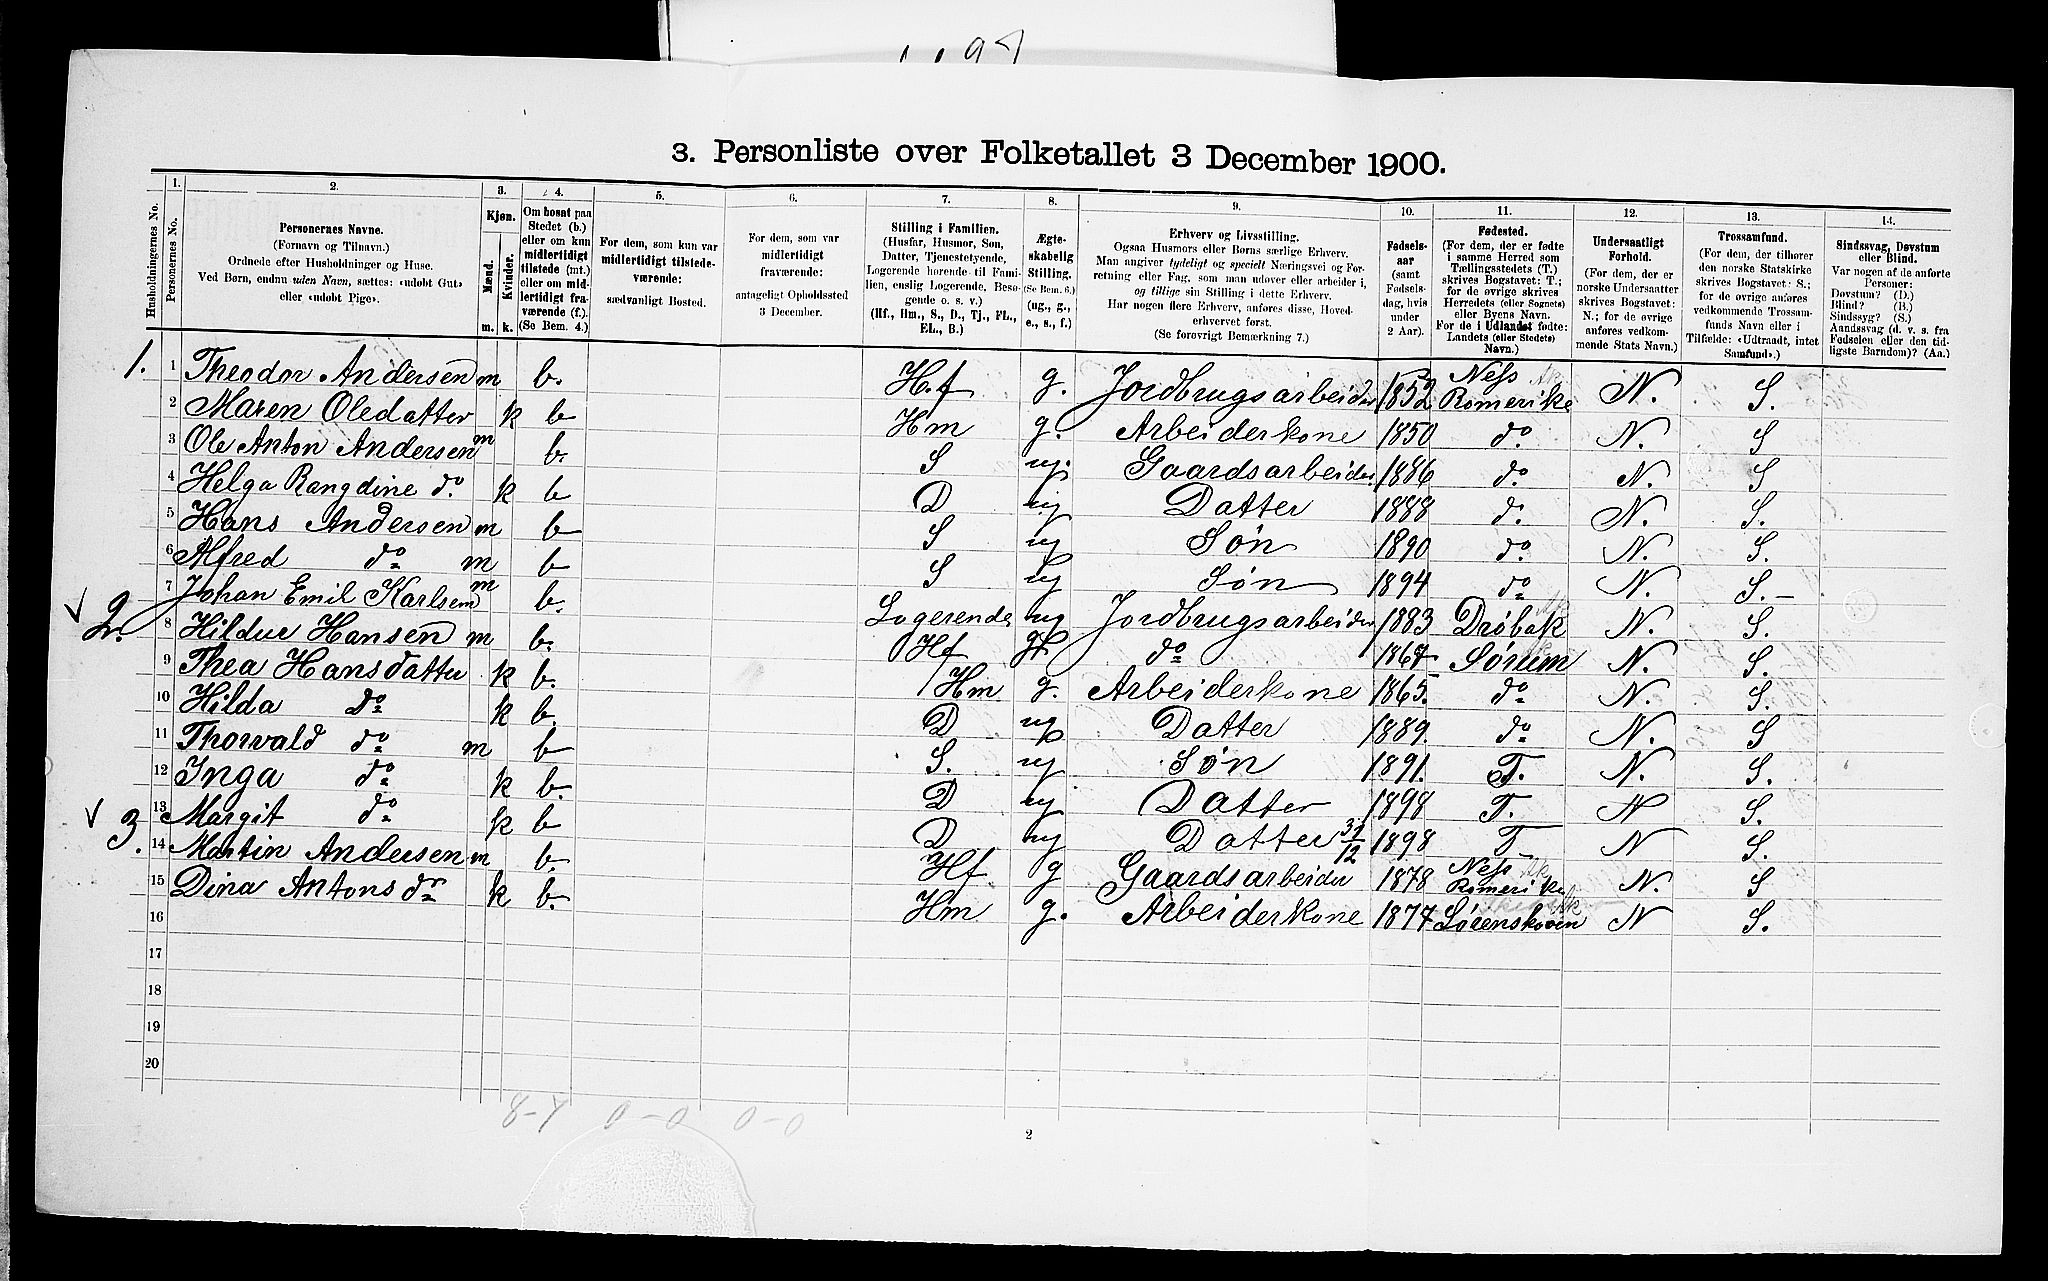 3. Personliste over Folketallet 3 December 1900.
Husholdningernes No.
1. Personernes No.
2. Personernes Navne.
(Fornavn og Tilnavn.)
Ordnede efter Husholdninger og Huse.
Ved Børn, endnu uden Navn, sættes: «udøbt Gut»
eller «udøbt Pige».
3. Kjøn.
Mænd. m.
Kvinder. k.
4. Om bosat paa
Stedet (b.)
eller om kun
midlertidigt
tilstede (mt.)
eller om mid-
lertidigt fra-
værende (f.).
(Se Bem. 4.)
5. For dem, som kun var
midlertidigt tilstede-
værende:
sædvanligt Bosted.
6. For dem, som var
midlertidigt
fraværende:
antageligt Opholdssted
3 December.
7. Stilling i Familien.
(Husfar, Husmor, Søn,
Datter, Tjenestetyende,
Logerende hørende til Fami-
lien, enslig Logerende, Besø-
gende o. s. v.)
(Hf., Hm., S., D., Tj., FL.,
EL., B.)
8. Ægte-
skabelig
Stilling.
(Se Bem. 6.)
(ug., g.,
e., s., f.)
9. Erhverv og Livsstilling.
Ogsaa Husmors eller Børns særlige Erhverv.
Man angiver tydeligt og specielt Næringsvei og For-
retning eller Fag, som man udøver eller arbeider i,
og tillige sin Stilling i dette Erhverv.
Har nogen flere Erhverv, anføres disse, Hoved-
erhvervet først.
(Se forøvrigt Bemærkning 7.)
10. Fødsels-
aar
(samt
Fødsels-
dag, hvis
under
2 Aar).
11. Fødested.
(For dem, der er fødte
i samme Herred som
Tællingsstedets (T.)
skrives Bogstavet: T.;
for de øvrige skrives
Herredets (eller Sognets)
eller Byens Navn.
For de i Udlandet fødte:
Landets (eller Stedets)
Navn.)
12. Undersaatligt
Forhold.
(For dem, der er
norske Undersaatter
skrives Bogstavet:
N.; for de øvrige
anføres vedkom-
mende Stats Navn.)
13. Trossamfund.
(For dem, der tilhører
den norske Statskirke
skrives Bogstavet: S.;
for de øvrige anføres
vedkommende Trossam-
funds Navn eller i
Tilfælde: «Udtraadt, intet
Samfund».)
14. Sindssvag, Døvstum
eller Blind.
Var nogen af de anførte
Personer:
Døvstum? (D.)
Blind? (B.)
Sindssyg? (S.)
Aandssvag (d. v. s. fra
Fødselen eller den tid-
ligste Barndom)? (Aa.)
1. 1 Theodor Andersen m b. H.f g. Jordbrugsarbeider 1852 Ness Romerike Ak N. S.
2 Maren Oledatter k b Hm g. Arbeiderkone 1850 do. N. S
3 Ole Anton Andersen m b. S ug. Gaardsarbeider 1886 do. N. S
4 Helga Rangdine do. k b D ug Datter 1888 do. N. S.
5 Hans Andersen m b S ug Søn 1890 do N. S.
6 Alfred do m b S ug Søn 1894 do N. S.-
7 Johan Emil Karlsen m b. Logerende ug Jordbrugsarbeider 1883 Drøbak Ak N. S.
v 2. 8 Hildur Hansen m b. Hf g do 1867 Sørum Ak N. S.
9 Thea Hansdatter k b. Hm g. Arbeiderkone 1865. do N. S.
10 Hilda Do k b. D ug Datter 1889. do N. S
11 Thorvald do m b S. ug Søn 1891. T. N. S.
12 Inga do k b. D ug Datter 1898 T. N S.
13 Margit do k b D ug Datter 31/12 1898 T N S.
v 3. 14 Martin Andersen m b. Hf g Gaardsarbeider 1878 Ness Romerike Ak N. S
15 Dina Antons dr k b. Hm g. Arbeiderkone 1877 Sørenskoven Ak N S.
16
17
18
19
20
8-7 0-0 0-0
2